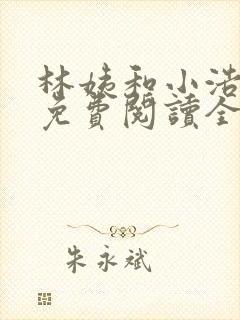 林姨和小浩
免費閱讀全
朱永斌